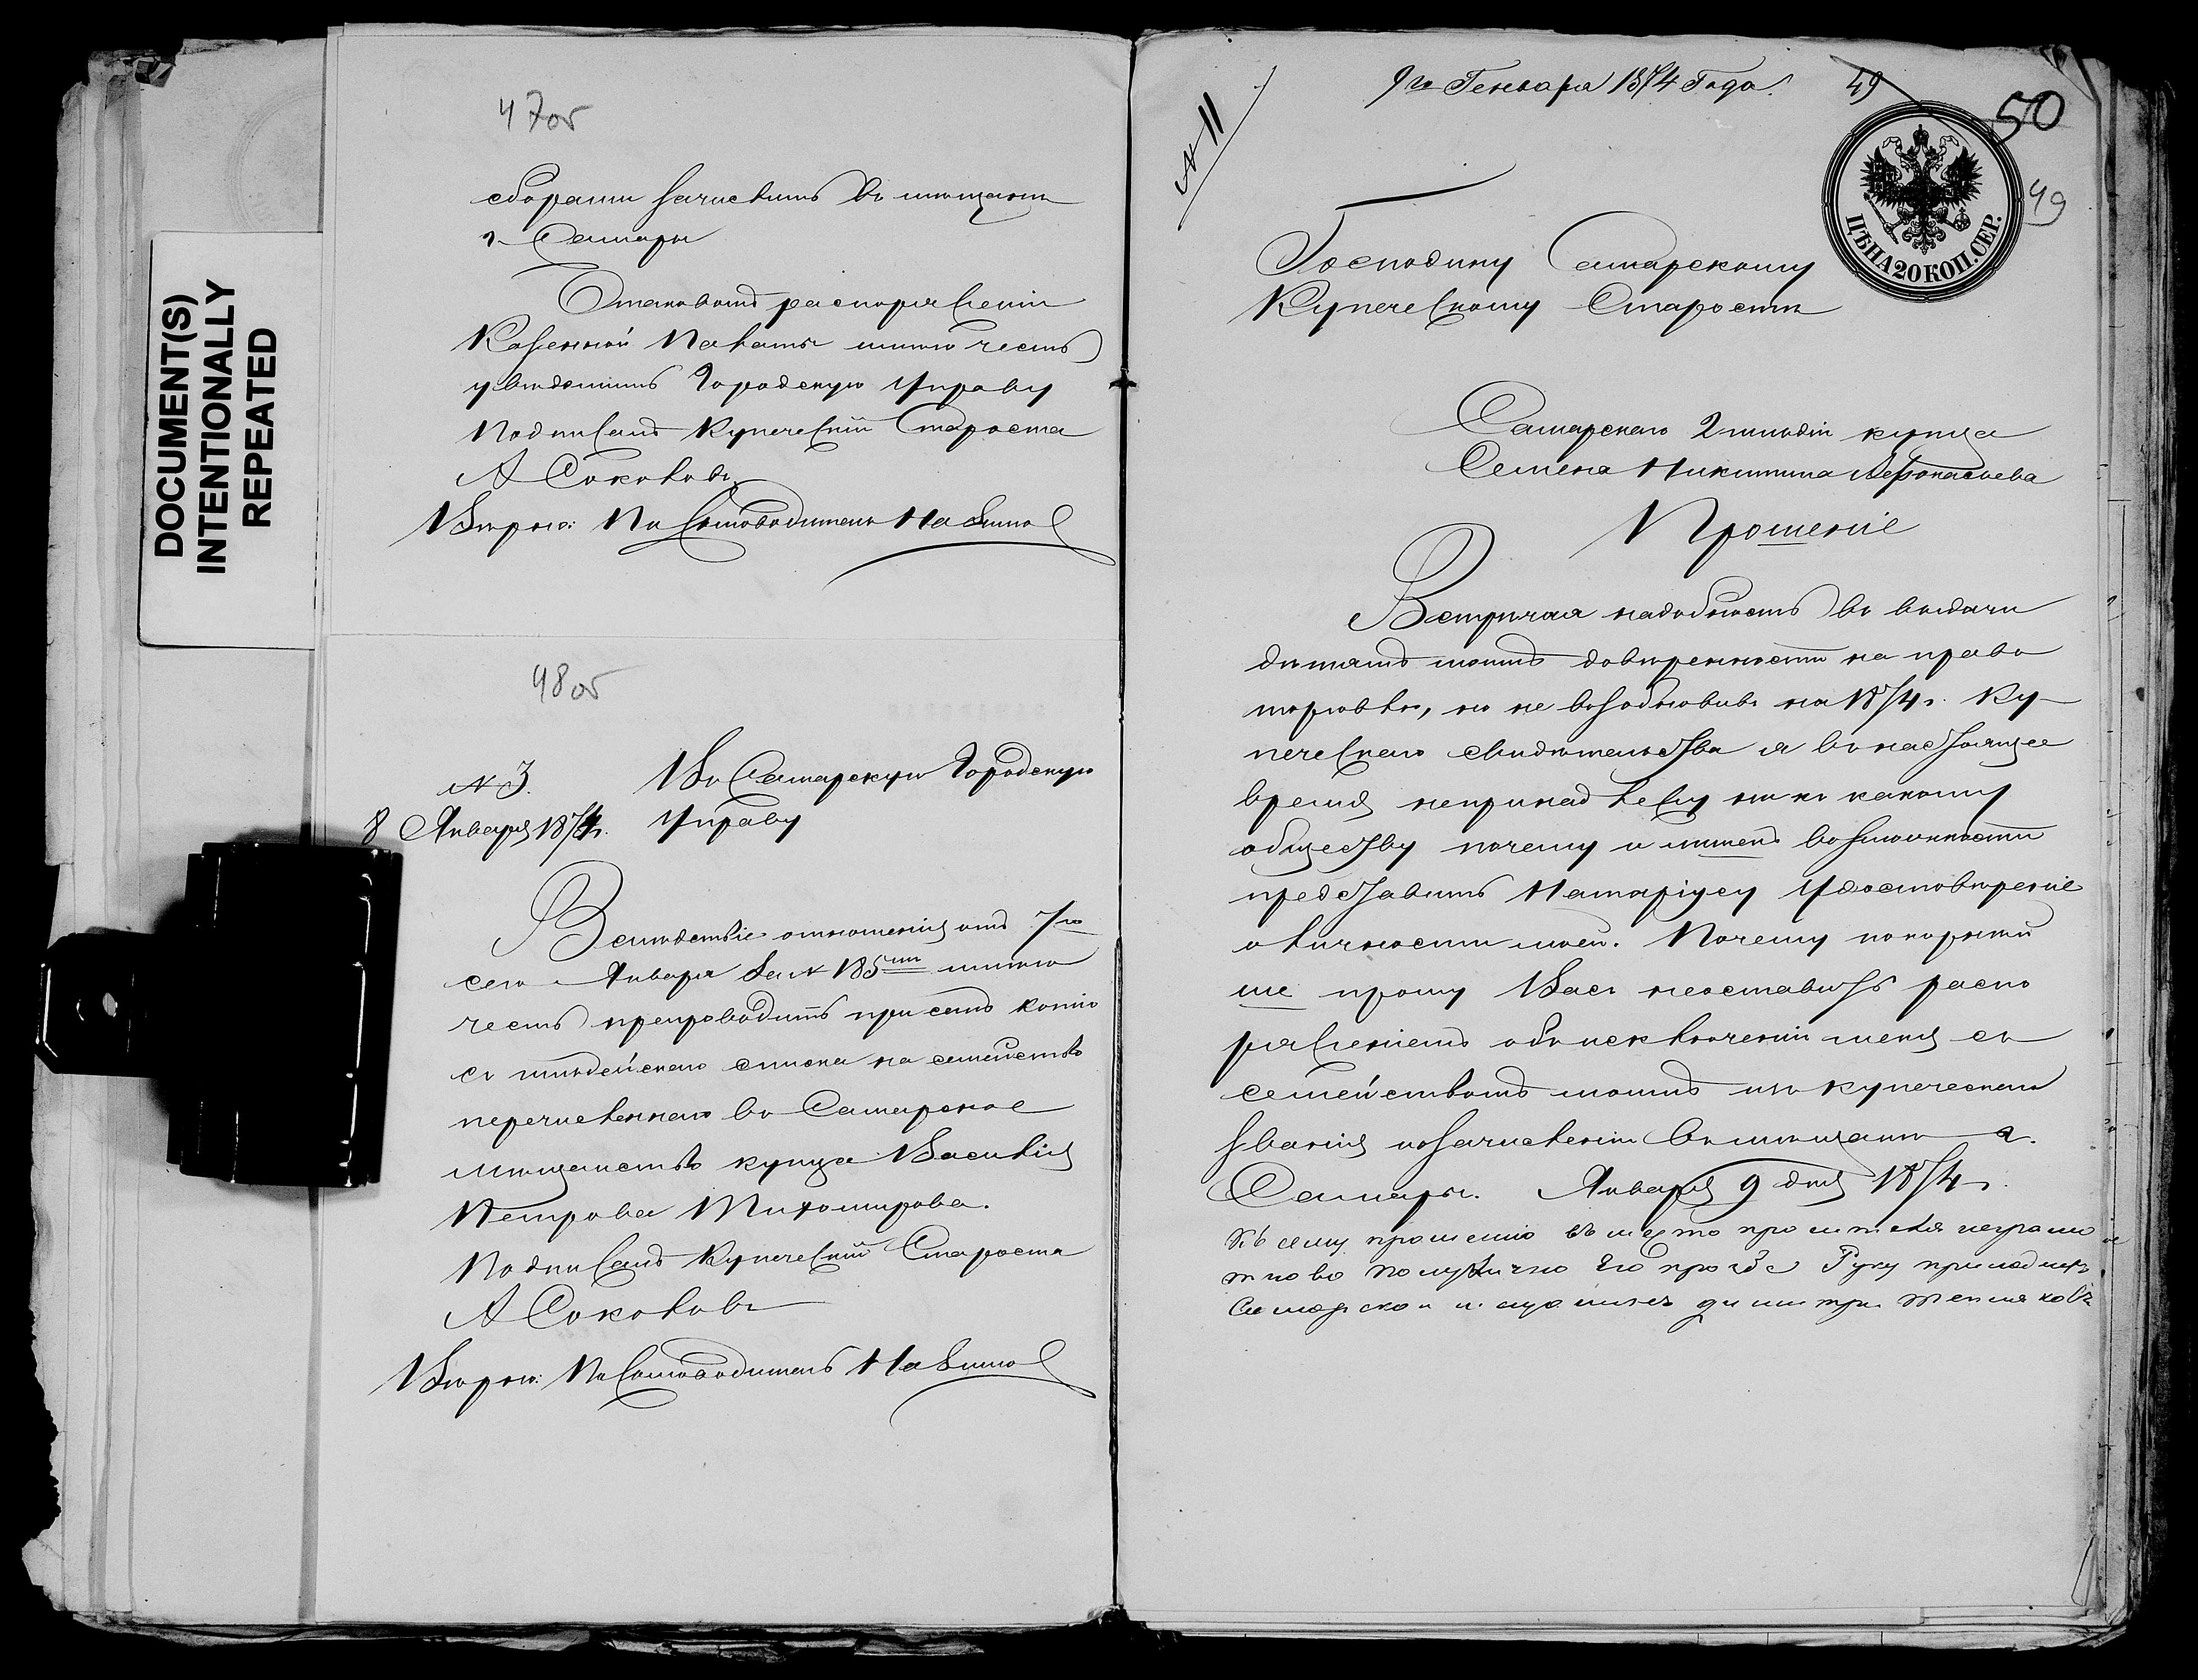 DOCUMENT(S)
INTENTIONALLY
REPEATED
47об
собраніи зачислить въ мѣщане
г. Самары
О таковомъ распоряженіи
Казенной Палаты имѣю честь
увѣдомить Городскую Управу
Подписалъ Купеческій Староста
А Соколовъ
Вѣрно: Письмоводитель
48об
№ 3.
8 Января 1874 г.
Въ Самарскую Городскую
Управу
Вслѣдствіе отношенія отъ 7го
сего Января за № 185мъ имѣю
честь препроводить при семъ копію
съ гильдейскаго списка на семейство
перечисленнаго въ Самарское
мѣщанство купца Василія
Петрова Тихомирова.
Подписалъ Купеческій Староста
А Соколовъ
Вѣрно: Письмоводитель
№ 11
9го Генваря 1874 Года.
49
50
49
ЦѢНА 20 КОП. СЕР.
Господину Самарскому
Купеческому Старостѣ
Самарскаго 2 гильдіи купца
Семена Никитина Афонасьева
Прошеніе
Встрѣчая надобность въ выдачи
дѣтямъ моимъ довѣренности на право
торговли, но не возобновивъ на 1874 г. Ку-
печескаго свидѣтельства я въ настоящее
время непринадлежу ни къ какому
обществу почему и лишенъ возможности
представить Натаріусу Удостовѣреніе
о личности моей. Почему покорнѣй
ше прошу Васъ неоставить распо
ряженіемъ объ исключеніи меня съ
семействомъ моимъ изъ купеческаго
званія и о зачисленіи въ мѣщане г.
Самары. Января 9 дня 1874 г.
Къ сему прошенію въместо просителя неграмо
тново по лично его прозбе Руку приложилъ
Самарской мещанинъ димитри